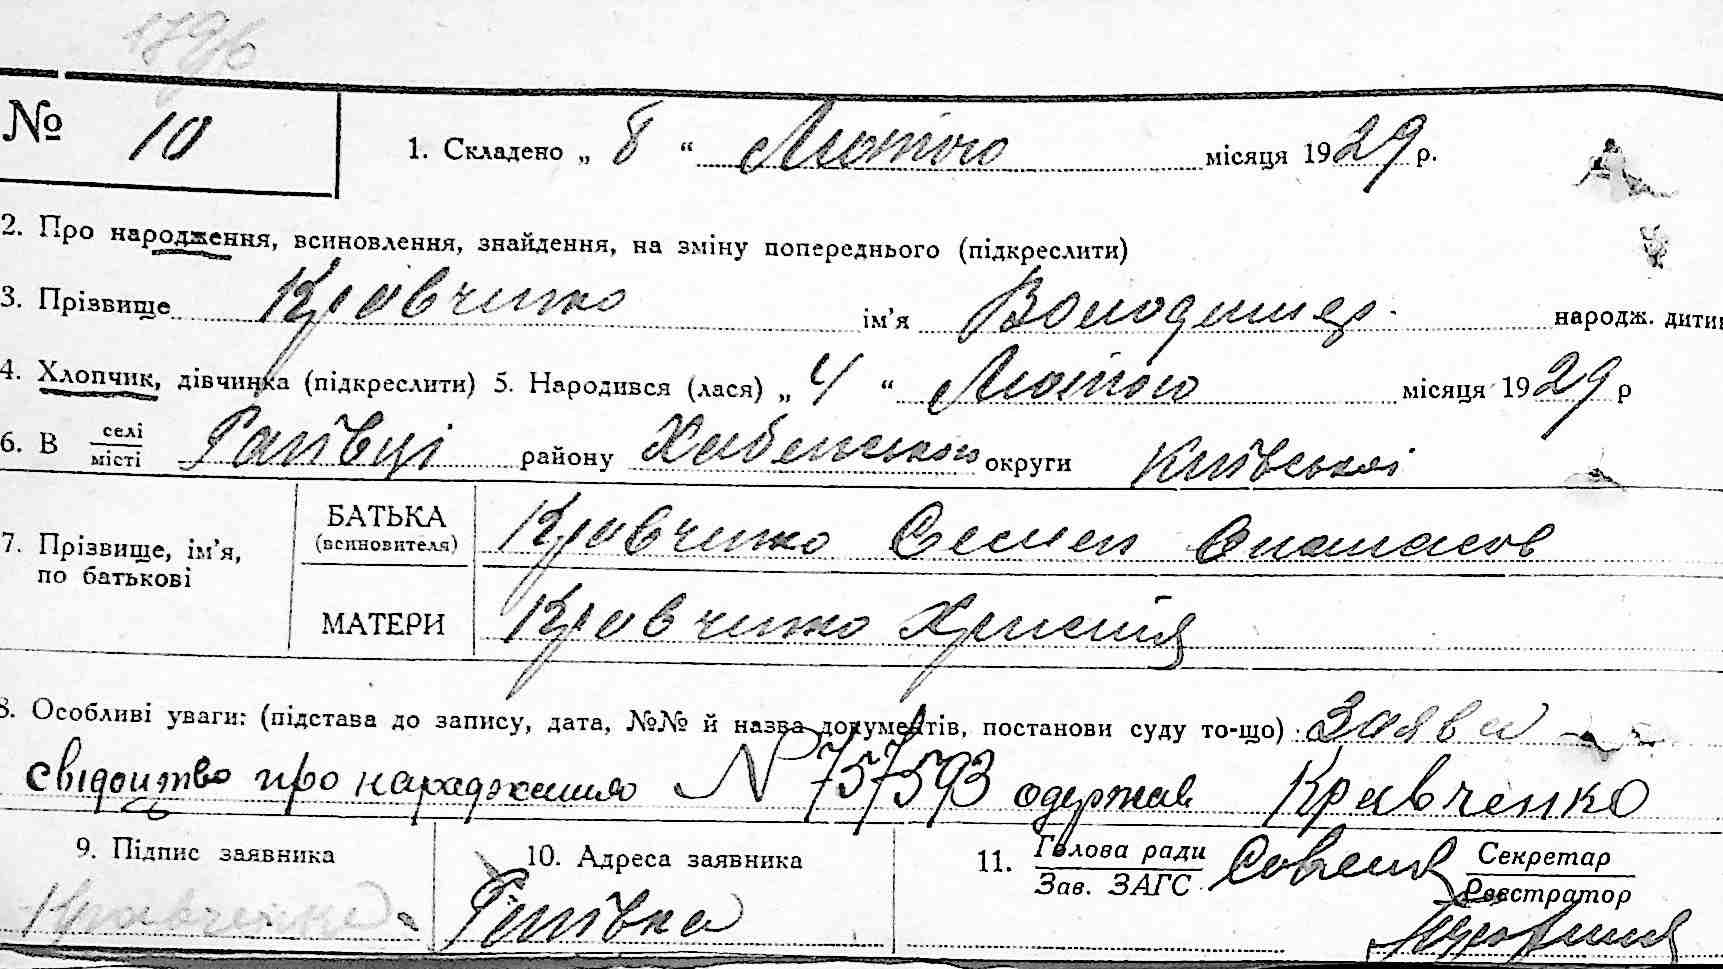 1896
№ 10
1. Складено „ 8 “ Лютого місяця 1929 р.
2. Про народження, всиновлення, знайдення, на зміну попереднього (підкреслити)
3. Прізвище Кравченко ім’я Володимер. народж. дити
4. Хлопчик, дівчинка (підкреслити) 5. Народився (лася) „ 4 “ Лютого місяця 1929 р
6. В селі місті Рагівці району Хабенського округи Київської
7. Прізвище, ім’я, по батькові
БАТЬКА (всиновителя) Кравченко Семен Опанасов
МАТЕРИ Кравченко Христия
8. Особливі уваги: (підстава до запису, дата, №№ й назва документів, постанови суду то-що) Заява
свідоцтво про народження N 757593 одержав Кравченко
9. Підпис заявника
Кравченко
10. Адреса заявника
11. Голова ради
Зав. ЗАГС
Секретар
Реєстратор